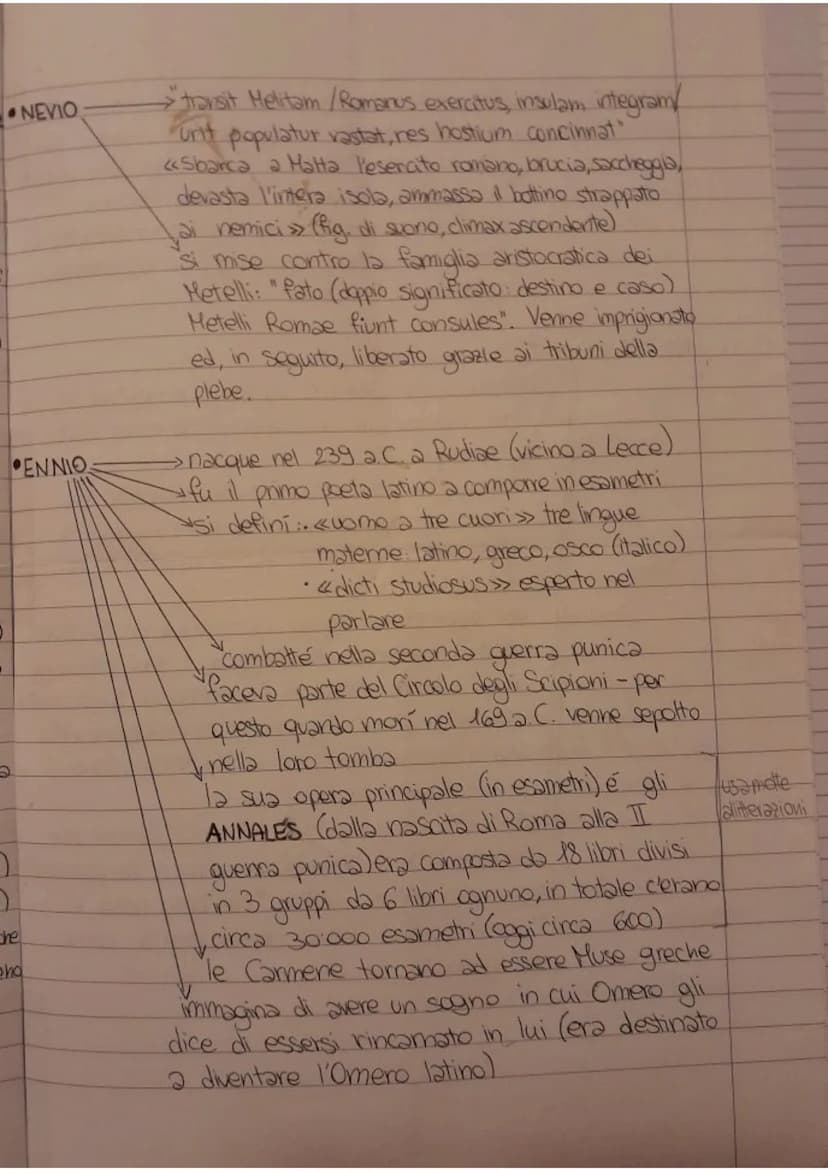 • NEVIO → "transit Melitam / Romanus exercitus, insulam integram /
urit populatur vastat, res hostium concinnat"
«Sbarca a Malta l'esercito romano, brucia, saccheggia,
devasta l'intera isola, ammassa il bottino strappato
ai nemici» (fig. di suono, climax ascendente)
si mise contro la famiglia aristocratica dei
Metelli: "fato (doppio significato: destino e caso)
Metelli Romae fiunt consules". Venne imprigionato
ed, in seguito, liberato grazie ai tribuni della
plebe.
• ENNIO → nacque nel 239 a.C. a Rudiae (vicino a Lecce)
fu il primo poeta latino a comporre in esametri
si definì: • «uomo a tre cuori» tre lingue
materne: latino, greco, osco (italico)
• «dicti studiosus» esperto nel
parlare
combatté nella seconda guerra punica
faceva parte del Circolo degli Scipioni - per
questo quando morí nel 169 a.C. venne sepolto
nella loro tomba
la sua opera principale (in esametri) é gli
ANNALES (dalla nascita di Roma alla II
guerra punica) era composta da 18 libri divisi
in 3 gruppi da 6 libri ognuno, in totale c'erano
circa 30'000 esametri (oggi circa 600)
usa molte
allitterazioni
le Camene tornano ad essere Muse greche
immagina di avere un sogno in cui Omero gli
dice di essersi rincarnato in lui (era destinato
a diventare l'Omero latino)